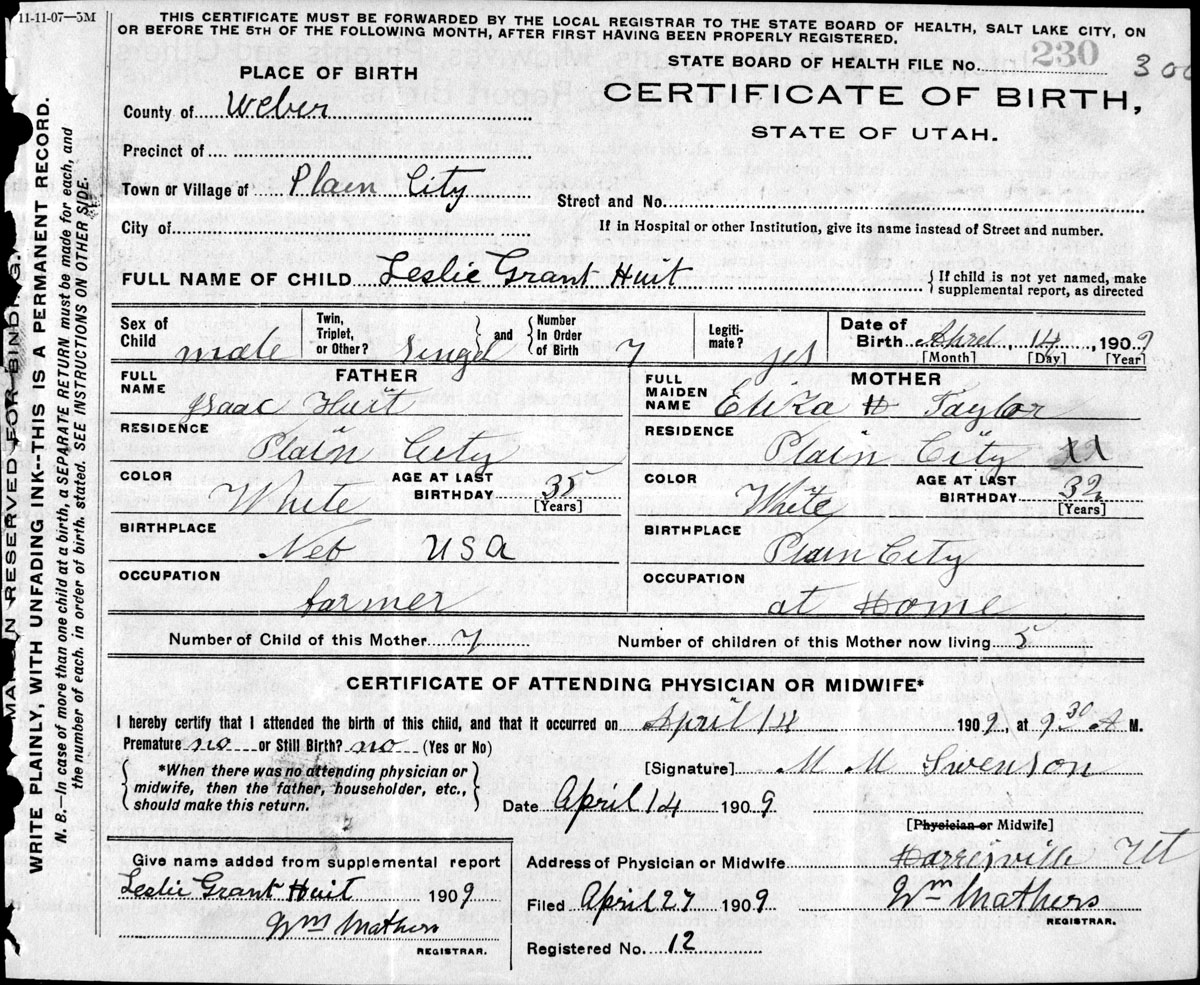 11-11-07—5M
THIS CERTIFICATE MUST BE FORWARDED BY THE LOCAL REGISTRAR TO THE STATE BOARD OF HEALTH, SALT LAKE CITY, ON
OR BEFORE THE 5TH OF THE FOLLOWING MONTH, AFTER FIRST HAVING BEEN PROPERLY REGISTERED.
STATE BOARD OF HEALTH FILE No. 230 300
PLACE OF BIRTH
CERTIFICATE OF BIRTH,
STATE OF UTAH.
County of Weber
Precinct of
Town or Village of Plain City
Street and No.
City of
If in Hospital or other Institution, give its name instead of Street and number.
FULL NAME OF CHILD Leslie Grant Huit
{ If child is not yet named, make
supplemental report, as directed
Sex of Child male
Twin, Triplet, or Other? Singel
and
Number In Order of Birth 7
Legiti-mate? yes
Date of Birth April 14, 1909
[Month] [Day] [Year]
FATHER
FULL NAME Isaac Huit
RESIDENCE Plain City
COLOR White
AGE AT LAST BIRTHDAY 35
[Years]
BIRTHPLACE Neb USA
OCCUPATION farmer
MOTHER
FULL MAIDEN NAME Eliza H Taylor
RESIDENCE Plain City
COLOR White
AGE AT LAST BIRTHDAY 32
[Years]
BIRTHPLACE Plain City
OCCUPATION at Home
Number of Child of this Mother 7
Number of children of this Mother now living 5
CERTIFICATE OF ATTENDING PHYSICIAN OR MIDWIFE*
I hereby certify that I attended the birth of this child, and that it occurred on April 14 1909, at 9.30 A M.
Premature no or Still Birth? no (Yes or No)
*When there was no attending physician or
midwife, then the father, householder, etc.,
should make this return.
[Signature] M M Swenson
Date April 14 1909
[Physician or Midwife]
Give name added from supplemental report
Leslie Grant Huit 1909
Wm Mathers
REGISTRAR.
Address of Physician or Midwife Harrisville Ut
Filed April 27 1909 Wm Mathers
REGISTRAR.
Registered No. 12
MARGIN RESERVED FOR BINDING.
WRITE PLAINLY, WITH UNFADING INK--THIS IS A PERMANENT RECORD.
N. B.—In case of more than one child at a birth, a SEPARATE RETURN must be made for each, and
the number of each, in order of birth, stated. SEE INSTRUCTIONS ON OTHER SIDE.